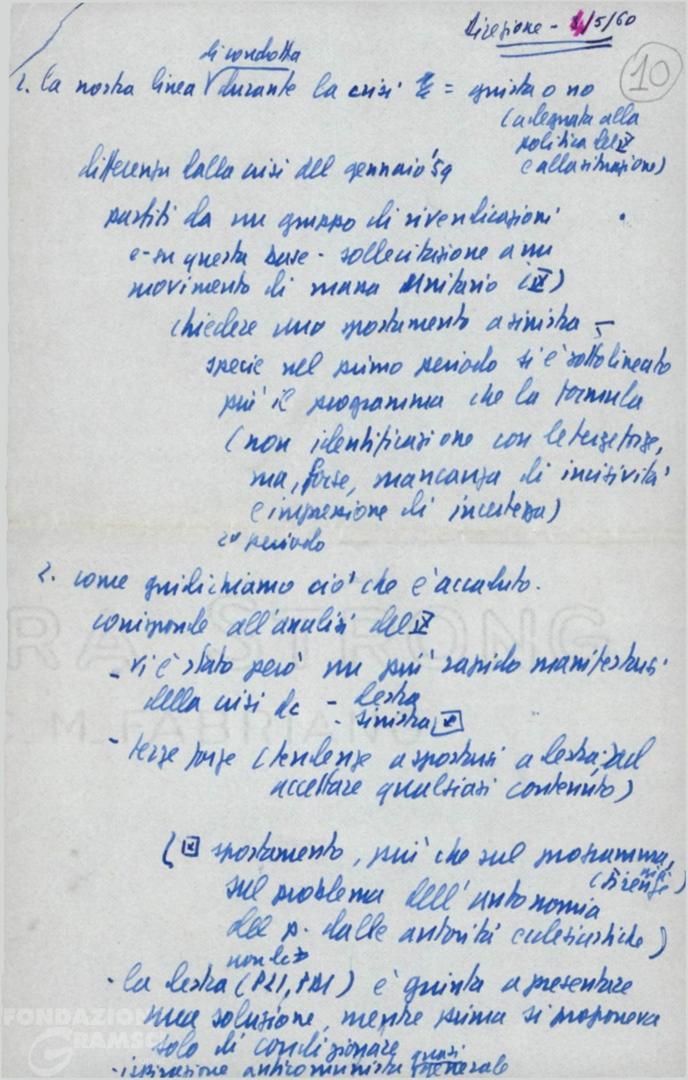 Direzione - 4/5/60
10
di condotta
1. la nostra linea durante la crisi = giusta o no
(adeguata alla
politica del IX
e alla situazione)
differenza dalla crisi del gennaio '59
partiti da un gruppo di rivendicazioni
e su questa base - sollecitazione a un
movimento di massa unitario (IX)
chiedere uno spostamento a sinistra -
specie nel primo periodo si è sottolineato
più il programma che la formula
(non identificazione con le terze forze,
ma, forse, mancanza di incisività
e impressione di incertezza)
2° periodo
2. come giudichiamo ciò che è accaduto.
corrisponde all'analisi del IX
- vi è stato però un più rapido manifestarsi
della crisi dc - destra
- sinistra [x]
- terze forze (tendenze a spostarsi a destra, ad
accettare qualsiasi contenuto)
([x] spostamento, più che sul programma,
(Firenze)
sul problema dell'autonomia
del p. dalle autorità ecclesiastiche)
non dc
- la destra (PLI, PDI) è giunta a presentare
una soluzione, mentre prima si proponeva
solo di condizionare
- ispirazione anticomunista quasi generale
RA STRONG
C. M. FABRIANO
FONDAZIONE
GRAMSCI